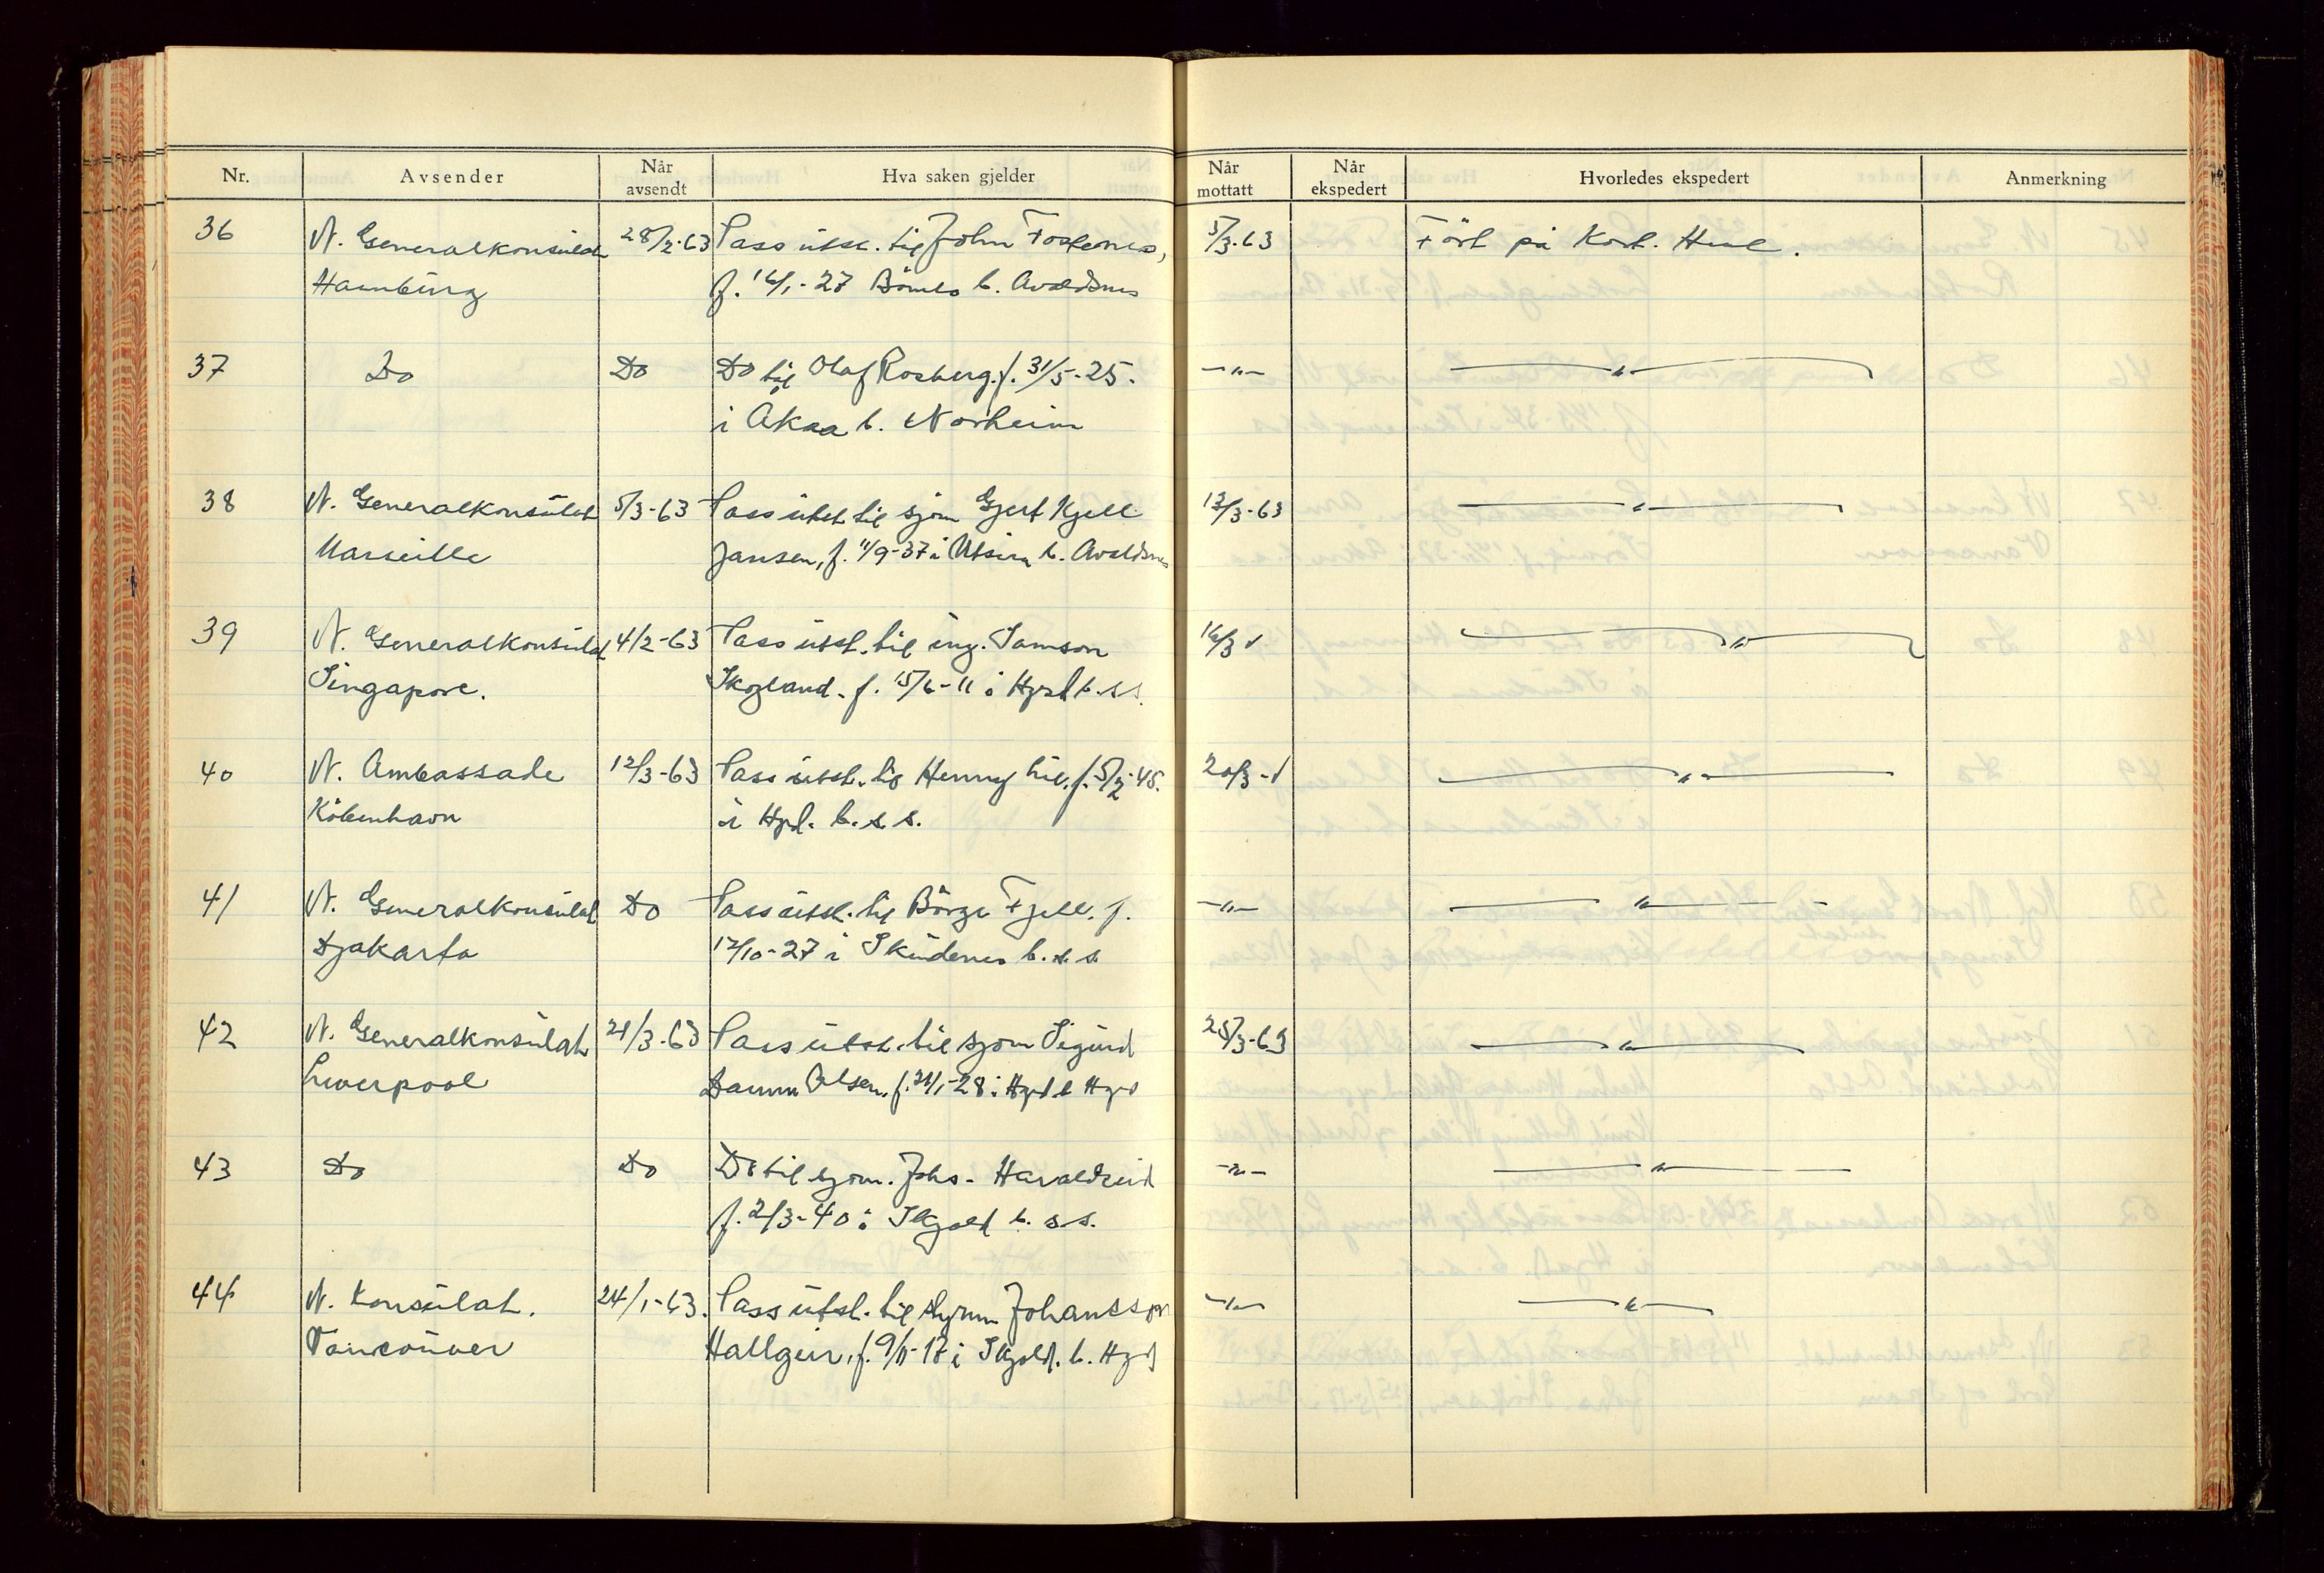 Nr. Avsender Når avsendt Hva saken gjelder Når mottatt Når ekspedert Hvorledes ekspedert Anmerkning
36 N. Generalkonsulat 28/2-63 Pass utst. til John Fosnes, 5/3-63 Ført på Kort.
Hamburg f. 16/1-27 Bömlo b. Avaldsnes
37 Do Do Do til Olaf Rosberg. f. 31/5-25. -"- -"-
i Åkra b. Norheim
38 N. Generalkonsulat 5/3-63 Pass utst. til sjøm Gjert Kjell 13/3-63 -"-
Marseille Jansen, f. 11/9-37 i Utsira b. Avaldsnes
39 N. Generalkonsulat 14/2-63 Pass utst. til ing. Samson 16/3 -"-
Singapore. Skogland. f. 15/6-11 i Hgsd b. s.s.
40 N. Ambassade 12/3-63 Pass utst. til Henny f. 5/2-45. 20/3 -"-
København i Hgsd. b. s. s.
41 N. Generalkonsulat Do Pass utst. til Børge Fjell. f. -"- -"-
Djakarta 12/10-27 i Skudenes b. s. s
42 N. Generalkonsulat 21/3-63 Pass utst. til sjøm Sigurd 25/3-63 -"-
Liverpool Olsen, f. 21/1-28 i Hgsd b Hgsd
43 Do Do Do til sjøm. Johs. Haraldseid -"- -"-
f. 2/3-40 i Skjold b. s.s.
44 N. Konsulat. 24/1-63. Pass utst. til styrm Johansson -"- -"-
Vancouver Hallgeir, f. 9/11-17 i Skjold. b. Hgsd